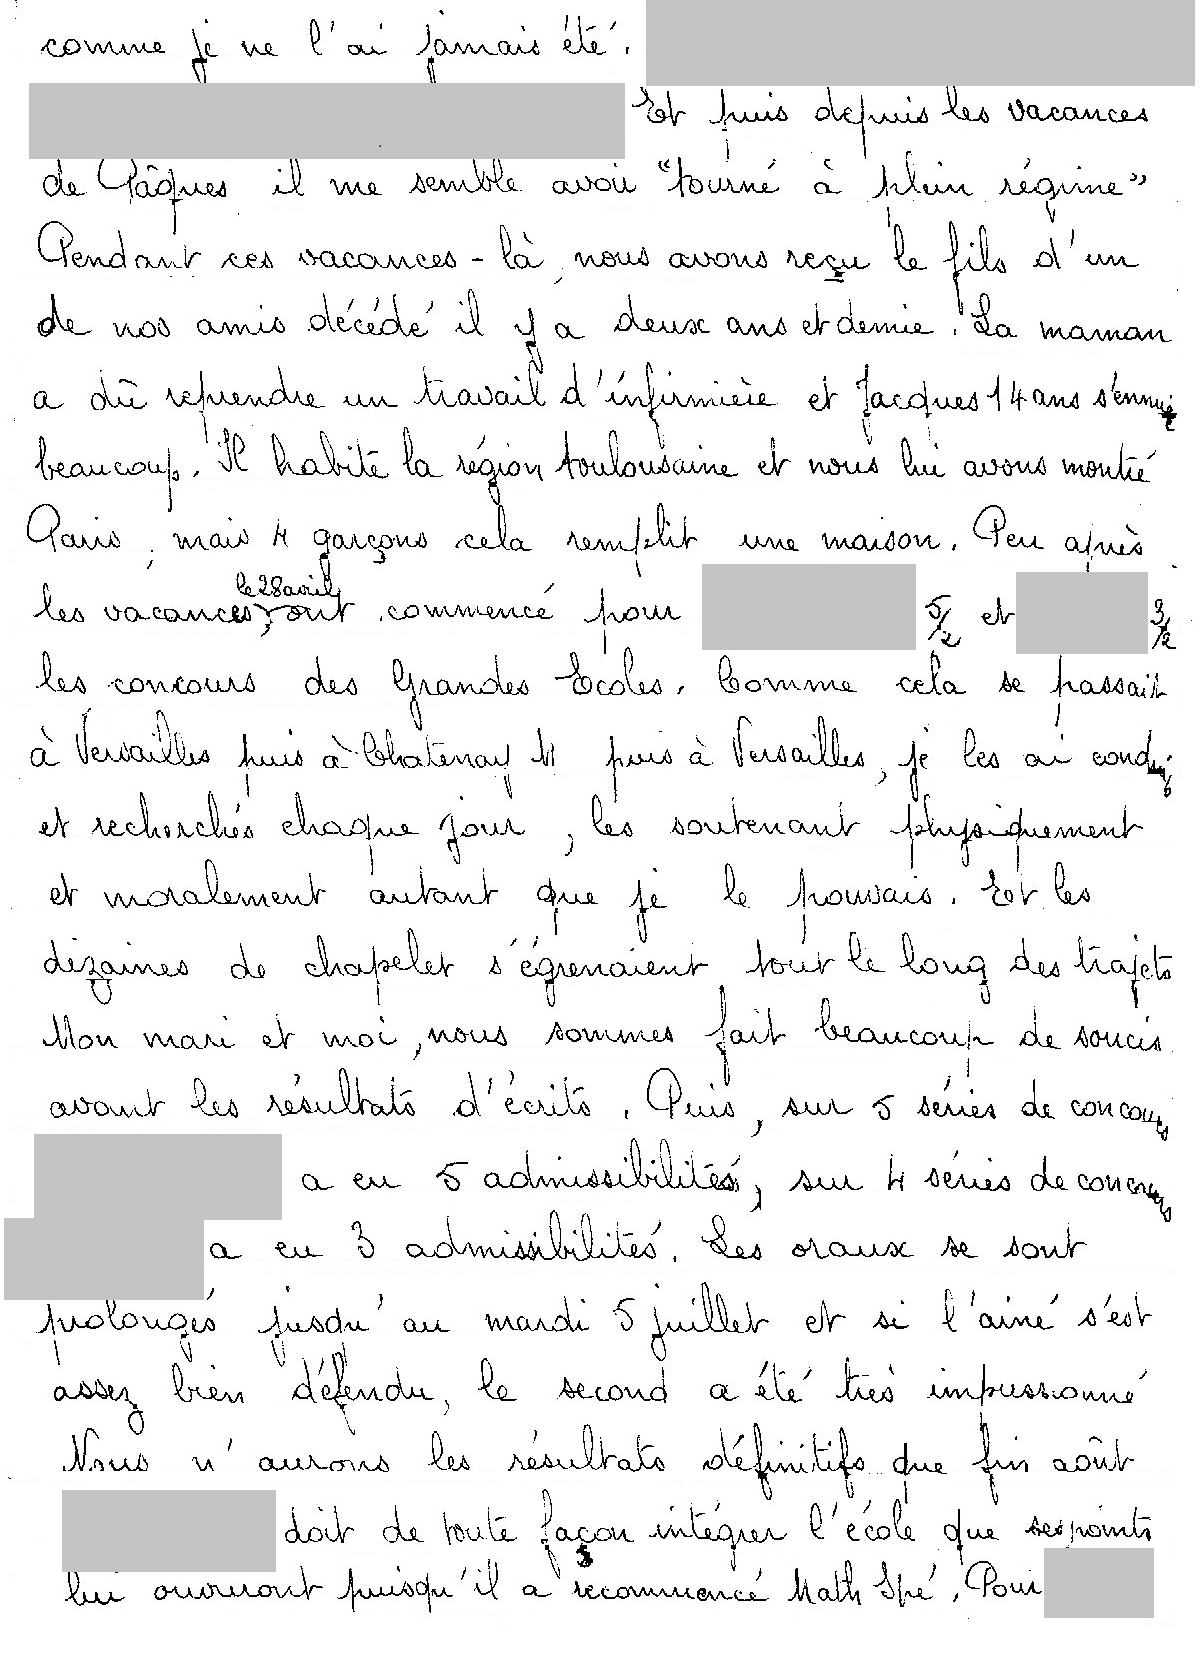 comme je ne l'ai jamais été.
Et puis depuis les vacances
de Pâques il me semble avoir "tourné à plein régime"
Pendant ces vacances-là, nous avons reçu le fils d'un
de nos amis décédé il y a deux ans et demie. La maman
a dû reprendre un travail d'infirmière et Jacques 14 ans s'ennuie
beaucoup. Il habite la région toulousaine et nous lui avons montré
Paris, mais 4 garçons cela remplit une maison. Peu après
le 28 avril
les vacances, ont commencé pour 5/2 et 3/2
les concours des Grandes Ecoles. Comme cela se passait
à Versailles puis à Chatenay M puis à Versailles, je les ai conduits
et recherchés chaque jour, les soutenant physiquement
et moralement autant que je le pouvais. Et les
dizaines de chapelet s'égrenaient tout le long des trajets
Mon mari et moi, nous sommes fait beaucoup de soucis
avant les résultats d'écrits. Puis, sur 5 séries de concours
a eu 5 admissibilités, sur 4 séries de concours
a eu 3 admissibilités. Les oraux se sont
prolongés jusqu'au mardi 5 juillet et si l'ainé s'est
assez bien défendu, le second a été très impressionné
Nous n'aurons les résultats définitifs que fin août
doit de toute façon intégrer l'école que ses points
lui ouvriront puisqu'il a recommencé Math Spé. Pour